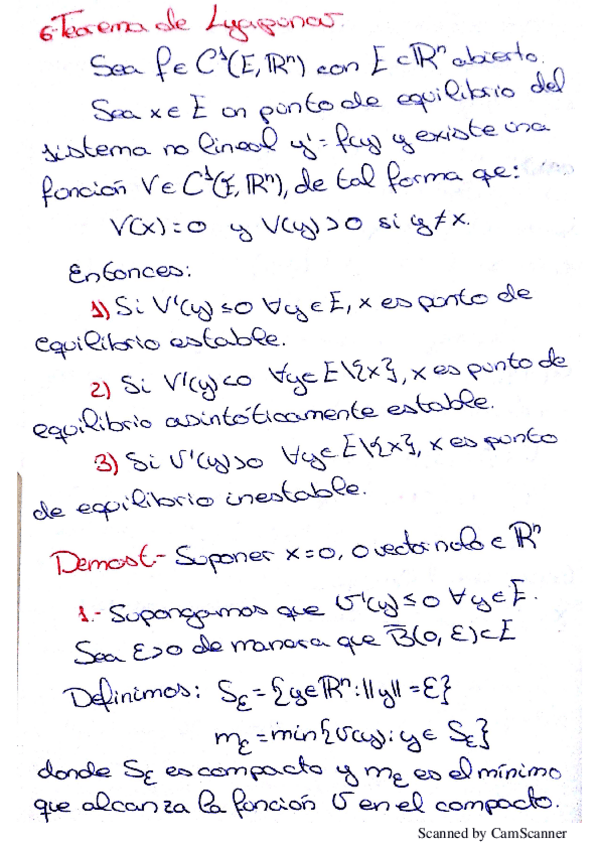 6-Teorema de Lyapunov.
Sea f ∈ C¹(E, ℝⁿ) con E ⊂ ℝⁿ abierto.
Sea x ∈ E un punto de equilibrio del
sistema no lineal y' = f(y) y existe una
función V ∈ C¹(E, ℝⁿ), de tal forma que:
V(x) = 0 y V(y) > 0 si y ≠ x.
Entonces:
1) Si V'(y) ≤ 0 ∀y ∈ E, x es punto de
equilibrio estable.
2) Si V'(y) < 0 ∀y ∈ E\{x}, x es punto de
equilibrio asintóticamente estable.
3) Si V'(y) > 0 ∀y ∈ E\{x}, x es punto
de equilibrio inestable.
Demost.- Suponer x = 0, 0 vector nulo ∈ ℝⁿ
1.- Supongamos que V'(y) ≤ 0 ∀y ∈ E.
Sea ε > 0 de manera que B̅(0, ε) ⊂ E
Definimos: S_ε = {y ∈ ℝⁿ : ||y|| = ε}
m_ε = min{V(y) : y ∈ S_ε}
donde S_ε es compacto y m_ε es el mínimo
que alcanza la función V en el compacto.
Scanned by CamScanner